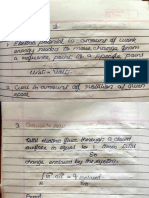 2
1. Electric potential is amount of work
energy needed to move charge from
a reference point to a specific point
Unit = Volts.
2. Curl is amount of rotation at given
space.
3
Total electric flux through a closed
surface is equal to 1 times total
charge enclosed by the system.